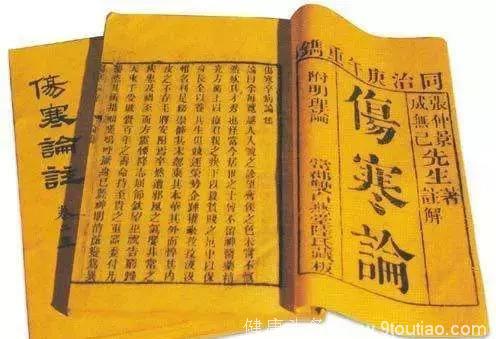 同治庚午年重鐫
張仲景先生著
成無己註解
傷寒論
附明理論
常郡雙白燕堂陸氏藏板
傷寒卒病論集
論曰余每覽越人入虢之診望齊侯之色未嘗不慨
然歎其才秀也怪當今居世之士曾不留神醫藥精
究方術上以療君親之疾下以救貧賤之厄中以保
身長全以養其生但競逐榮勢企踵權豪孜孜汲汲
惟名利是務崇飾其末忽棄其本華其外而悴其內
皮之不存毛將安附焉卒然遭邪風之氣嬰非常之
疾患及禍至而方震慄降志屈節欽望巫祝告窮歸
天束手受敗賫百年之壽命持至貴之重器委付凡
醫恣其所措咄嗟嗚呼厥身已斃神明消滅變為異
傷寒論註
健康头条 www.9toutiao.com